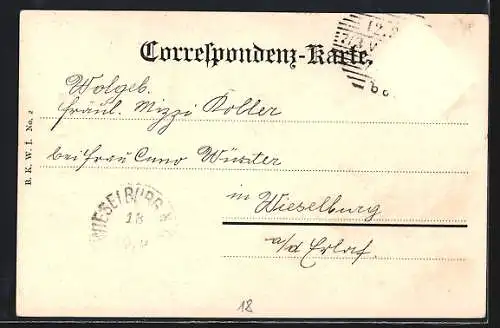 Correspondenz-Karte.
Wolgeb.
Fräul. Mizzi Koller
bei Frau Cuno Wüster
in Wieselburg
a/d Erlaf.
B. K. W. I. No. 2
WIESELBURG
18
18